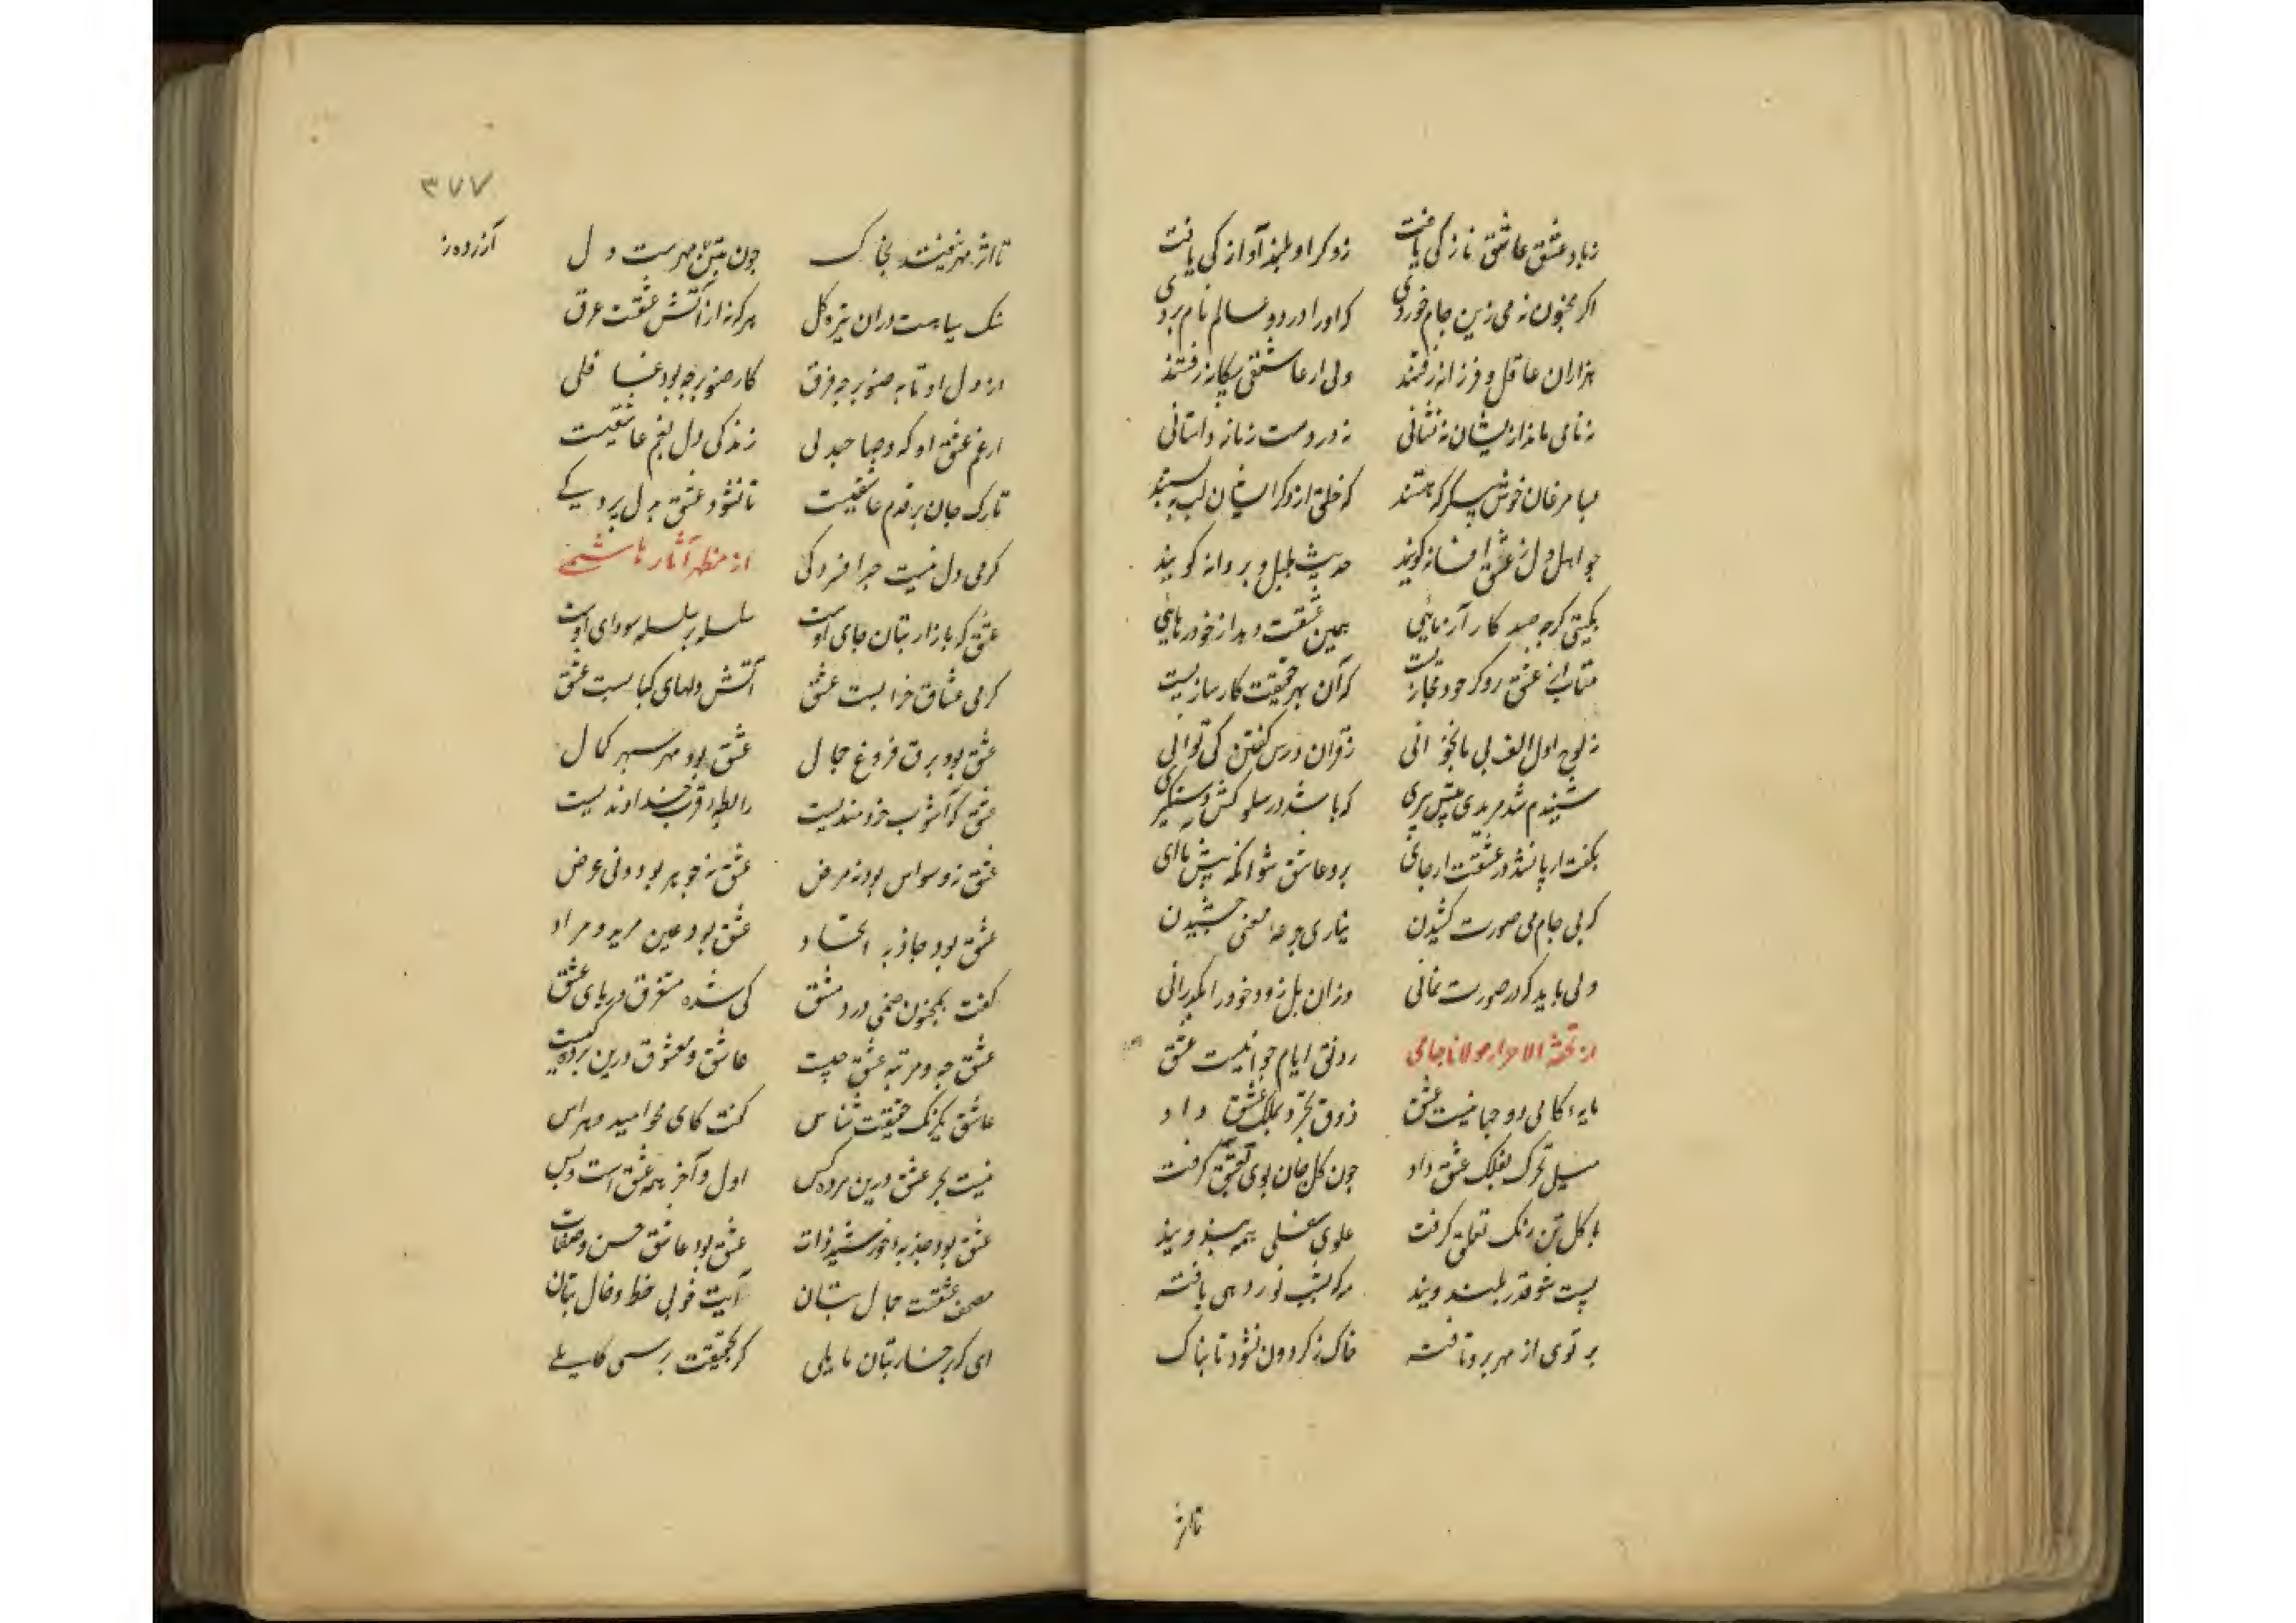 زیاد عشق عاشق تازگی یافت زذکر او بلند آوازگی یافت
اگر مجنون نه می زین جام خوردی که او را در دو عالم نام بردی
هزاران عاقل و فرزانه رفتند ولی از عاشقی بیگانه رفتند
نه نامی ماند از یشان نه نشانی نه در دست زمانه داستانی
بسا مرغان خوش پیکر که هستند که خلق از ذکر ایشان لب ببستند
جو اهل دل ز عشق افسانه گویند حدیث بلبل و بروانه گویند
بکیتی کرجه صد کار آزمایی همین عشقت دهد از خود رهایی
متاب از عشق رو کرجه مجازیست که آن بهر حقیقت کارسازیست
به لوح اول الف بی تا نخوانی ز قران درس گفتن کی توانی
شنیدم شد مریدی پیش پیری که باشد در سلوکش دستگیری
بکفت ار پا نشد در عشقت از جای برو عاشق شو انکه پیش ما آی
که بی جام می صورت کشیدن نیاری جرعه معنی چشیدن
ولی باید که در صورت نمانی وزان پل زود خود را بگذرانی
از تحفة الاحرار مولانا جامی رونق ایام جوانیست عشق
مایه کامی دو جهانیست عشق ذوق تجرد بملک عشق داد
میل تحرک بفلک عشق داد جون کل جان بوی تعشق کرفت
با کل تن رنک تعلق کرفت علوی سفلی همه بند ویند
پست شو قدر بلند ویند مه که بشب نور دهی یافته
برتوی از مهر برو تافته خاک ز کردون نشود تابناک
تا اثر
۳۷۷
تا اثر مهر نیفتد بخاک جون تن بی مهرست دل
سنک سیاهست دران تیره کل هر که نه از آتش عشقت غرق
از دل او تا به صنوبر جه فرق کار صنوبر جه بود غافلی
از غم عشق او که و صاحبدلی زندکی دل بغم عاشقیست
تارک جان بر قدم عاشقیست تا نشود عشق بدل بردکی
کرمی دل نیست جز افسردکی از مظهر آثار هاشمی
عشق که بازار بتان جای اوست سلسله بر سلسله سودای اوست
کرمی عشاق خرابست عشق آتش دلهای کبابست عشق
عشق بود برق فروغ جمال عشق بود مهر سپهر کمال
عشق که آشوب خردمندیست رابطه قرب خداوندیست
عشق نه وسواس بود نه مرض عشق نه جوهر بود و نی عرض
عشق بود جاذبه اتحاد عشق بود عین مرید و مراد
کفت بمجنون صنمی در دمشق کی شده مستغرق دریای عشق
عشق جه و مرتبه عشق چیست عاشق و معشوق درین برده کیست
عاشق یکرنک حقیقت شناس کفت کای محو امید و هراس
نیست بجز عشق درین برده کس اول و آخر همه عشق است و بس
عشق بود جذبه خورشید ذات عشق بود عاشق حسن و صفات
مصحف عشقت جمال بتان آیت خوبی خط و خال بتان
ای که برخسار بتان مایلی کر بحقیقت برسی کاملی